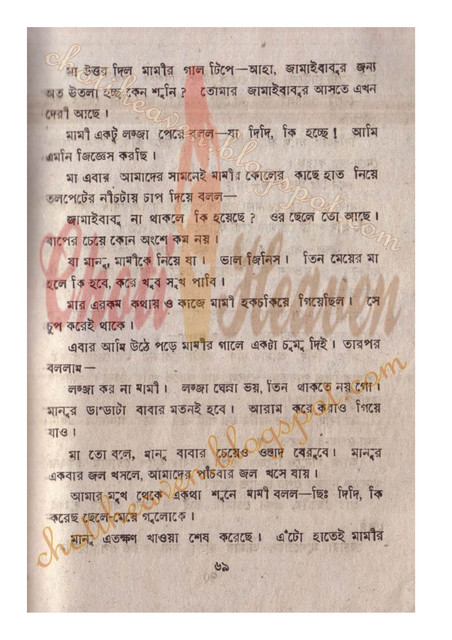 মা উত্তর দিল মামীর গাল টিপে—আহা, জামাইবাবুর জন্য
অত উতলা হচ্ছ কেন শুনি ? তোমার জামাইবাবুর আসতে এখন
দেরী আছে ।
মামী একটু লজ্জা পেয়ে বলল—যা দিদি, কি হচ্ছে ! আমি
এমনি জিজ্ঞেস করছি ।
মা এবার আমাদের সামনেই মামীর কোলের কাছে হাত নিয়ে
তলপেটের নীচটায় চাপ দিয়ে বলল—
জামাইবাবু না থাকলে কি হয়েছে ? ওর ছেলে তো আছে ।
বাপের চেয়ে কোন অংশে কম নয় ।
যা মানু, মামীকে নিয়ে যা । ভাল জিনিস । তিন মেয়ের মা
হলে কি হবে, করে খুব সুখ পাবি ।
মার এরকম কথায় ও কাজে মামী হকচকিয়ে গিয়েছিল । সে
চুপ করেই থাকে ।
এবার আমি উঠে পড়ে মামীর গালে একটা চুমু দিই । তারপর
বললাম—
লজ্জা কর না মামী । লজ্জা ঘেন্না ভয়, তিন থাকতে নয় গো ।
মানুর ডাণ্ডাটা বাবার মতনই হবে । আরাম করে করাও গিয়ে
যাও ।
মা তো বলে, মানু বাবার চেয়েও ওস্তাদ বেরুবে । মানুর
একবার জল খসলে, আমাদের পাঁচবার জল খসে যায় ।
আমার মুখ থেকে একথা শুনে মামী বলল—ছিঃ দিদি, কি
করেছ ছেলে-মেয়ে গুলোকে ।
মানু এতক্ষণ খাওয়া শেষ করেছে । এঁটো হাতেই মামীর
৬৯
Choti Heaven
chotiheaven.blogspot.com
chotiheaven.blogspot.com
chotiheaven.blogspot.com